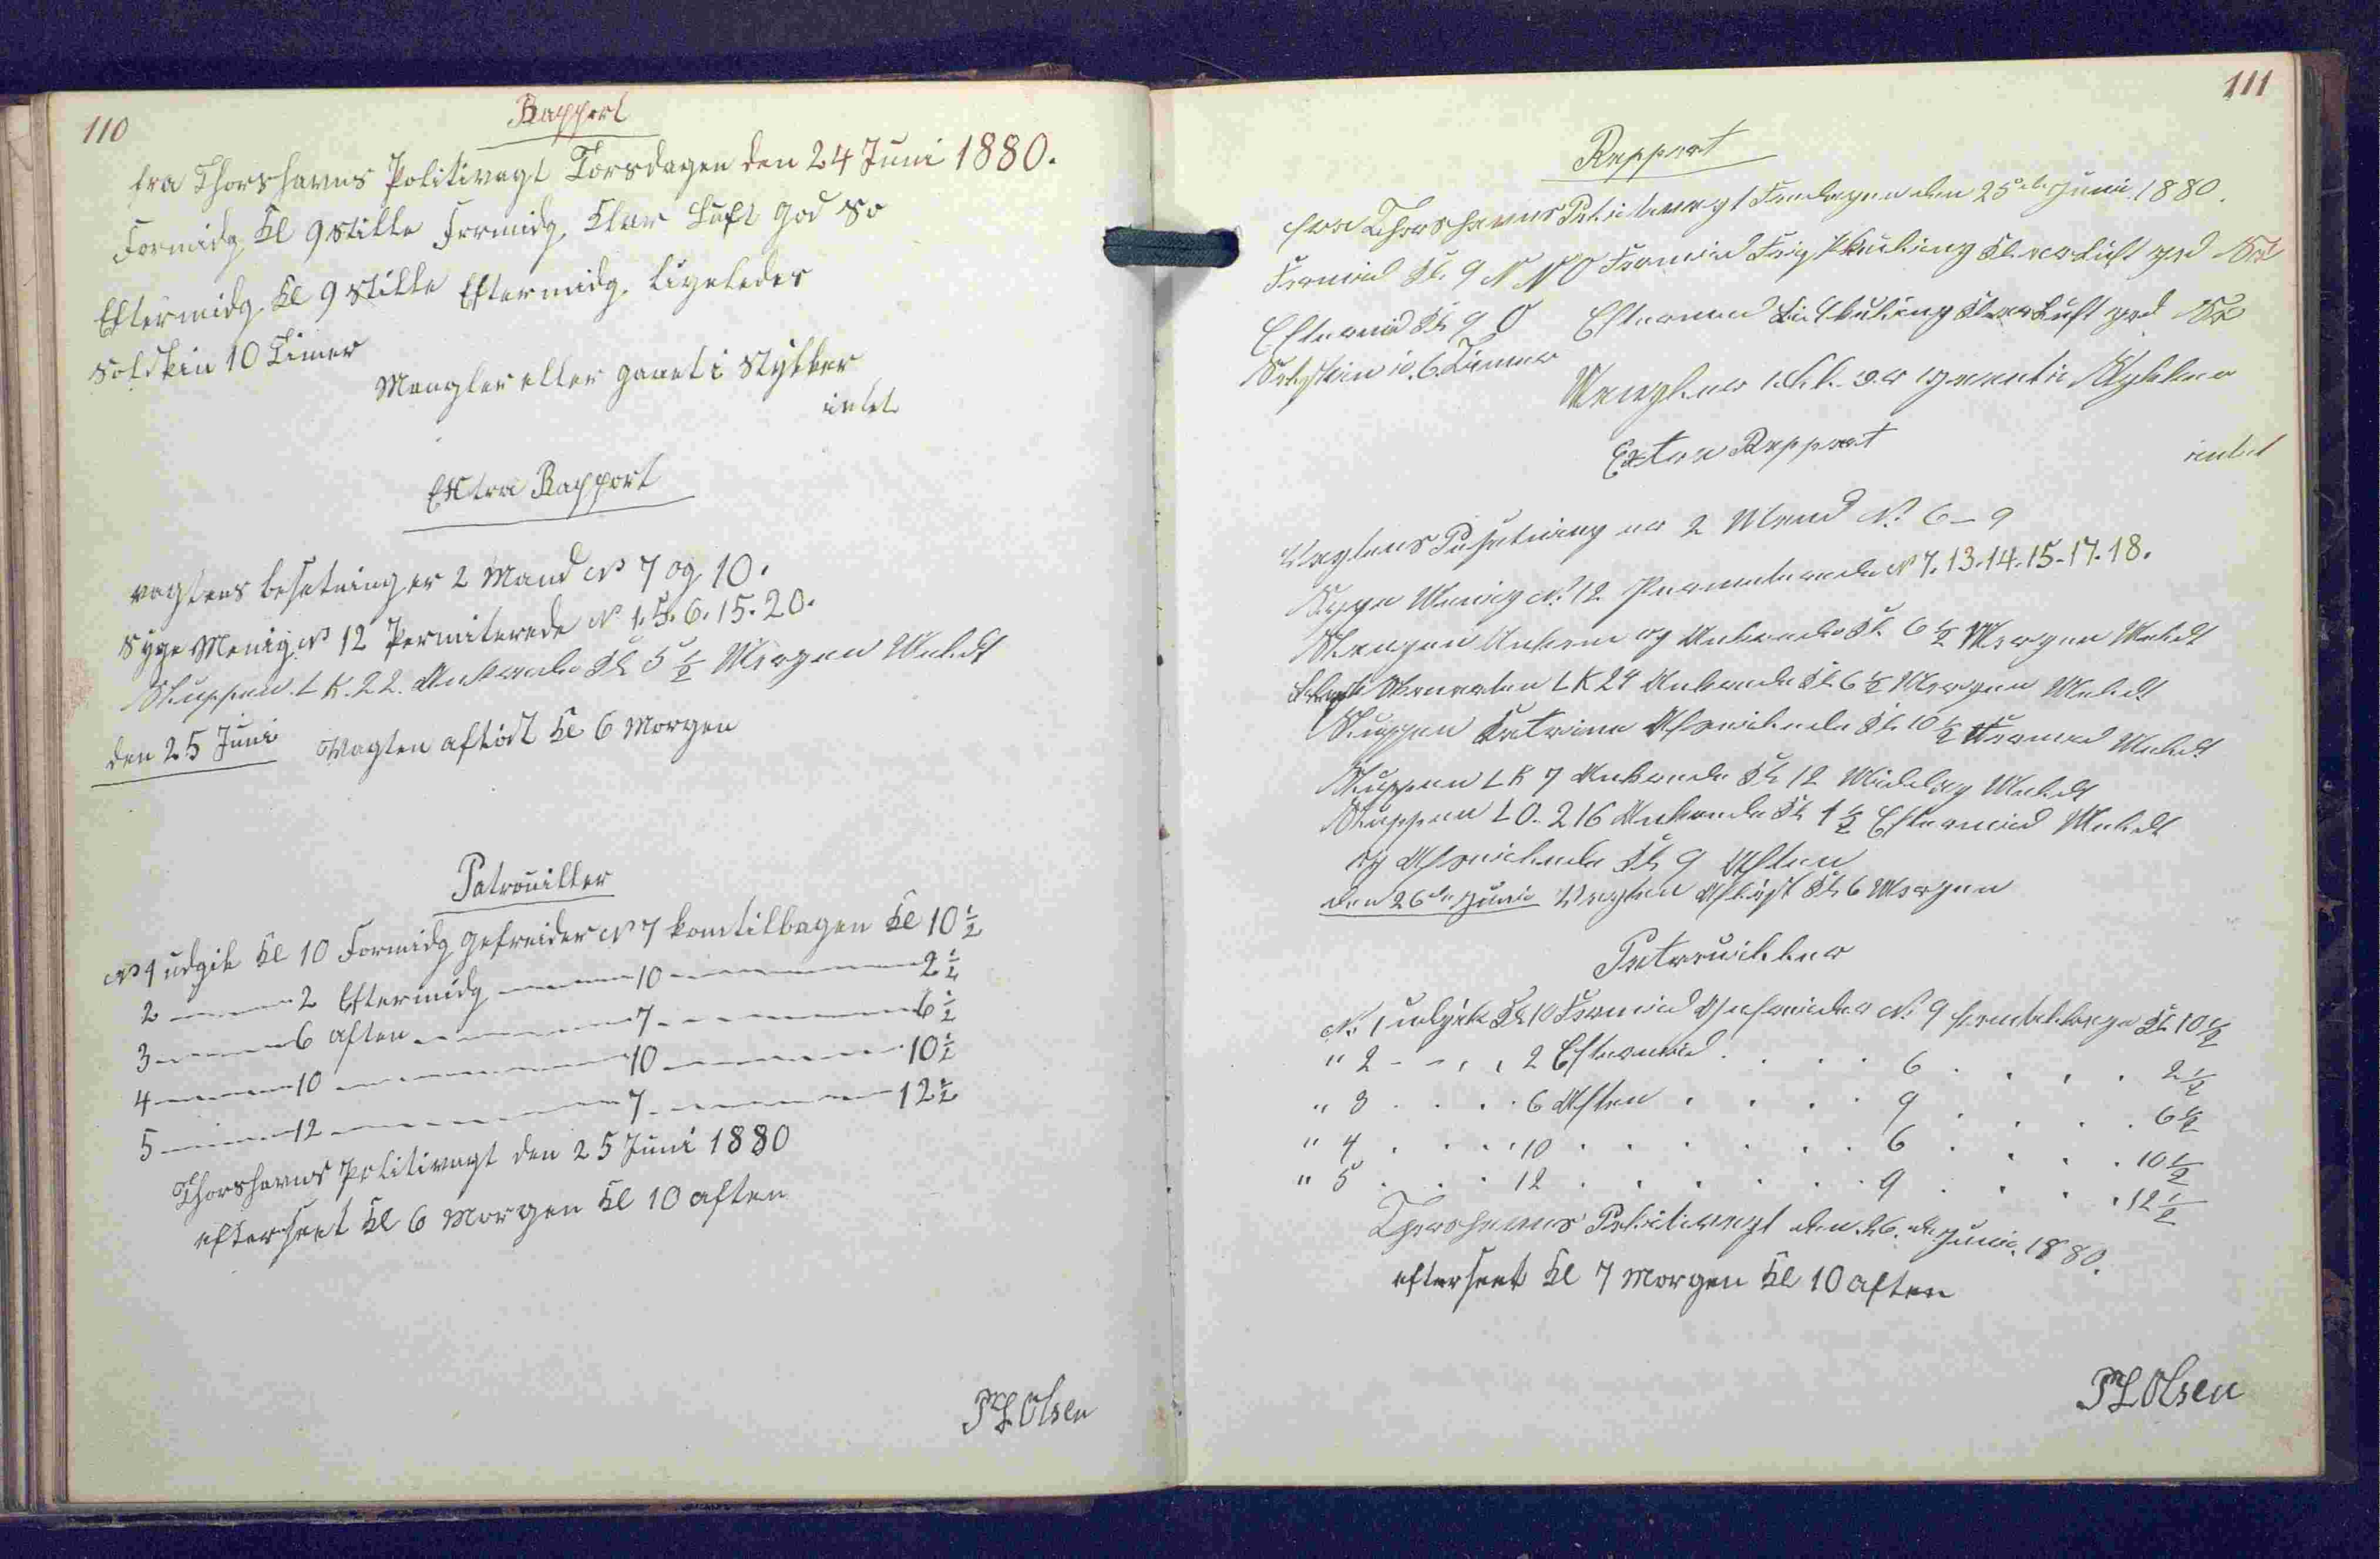 110
Rapport
fra Thorshavns Politivagt Torsdagen den 24 Juni 1880.
Formidg Kl 9 Stille Formidg. Klar Luft God So
Eftermidg. Kl 9 Stille Eftermidg. ligeledes
Solskin 10 Timer
Mangler eller gaaet i Stykker
intet
Extra Rapport
Vagtens Besetning er 2 Mand No 7 og 10.
Syge Menig No 12 Permiterede No 1.5.6.15.20.
Sluppen L K. 22. Ankrede Kl 5 1/2 Morgen Meldt
den 25 Juni Vagten afløst Kl 6 Morgen
Patrouiller
No 1 udgik Kl 10 Formidg Gefreider No 7 kom tilbagen Kl 10 1/2
2 — 2 Eftermidg — 10 — 2 1/2
3 — 6 Aften — 7 — 6 1/2
4 — 10 — 10 — 10 1/2
5 — 12 — 7 — 12 1/2
Thorshavns Politivagt den 25 Juni 1880
efterseet Kl 6 Morgen Kl 10 aften
Olsen
111
Rapport
fra Thorshavns Politivagt Fredagen den 25de Juni 1880.
Formid Kl. 9 N N O Formid Frisk Kuling Klar Luft god So
Eftermid Kl 9 O Eftermid Kuling Klar Luft god So
Solskin i 6 Timer
Mangler eller er gaaet i Stykker
intet
Extra Rapport
Vagtens Besetning er 2 Mand No. 6 – 9
Syge Menig No. 12 Permiterede No 7. 13. 14. 15. 17. 18.
og Ankrede Kl. 6 1/2 Morgen Meldt
L K 24 Ankrede Kl 6 1/2 Morgen Meldt
Sluppen Katrine Afseilede Kl. 10 1/2 Formid Meldt
Sluppen L K 7 Ankrede Kl 12 Middag Meldt
Sluppen L O. 216 Ankrede Kl 1 1/2 Eftermid Meldt
og Afseilede Kl 9 Aften
den 26de Juni Vagten Afløst Kl 6 Morgen
Patrouiller
No. 1 udgik Kl 10 Formid Gefreider No. 9 kom tilbage Kl. 10 1/2
" 2 - - . . 2 Eftermid . . . . 6 . . . . 2 1/2
" 3 . . . . 6 Aften . . . . 9 . . . . 6 1/2
" 4 . . . . 10 . . . . . . 6 . . . . 10 1/2
" 5 . . . . 12 . . . . . . 9 . . . . 12 1/2
Thorshavns Politivagt den 26. de Juni. 1880.
efterseet Kl 7 Morgen Kl 10 aften
Olsen